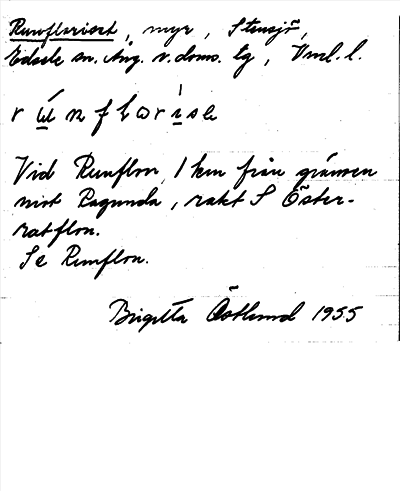 Runfloriset, myr, Stensjö,
Edsele sn. Ång. v. doms. tg, Vml. l.
rúnflorìse
Vid Runflon, 1 km från gränsen
mot Ragunda, rakt S Öster-
ratflon.
Se Runflon.
Birgitta Östlund 1955